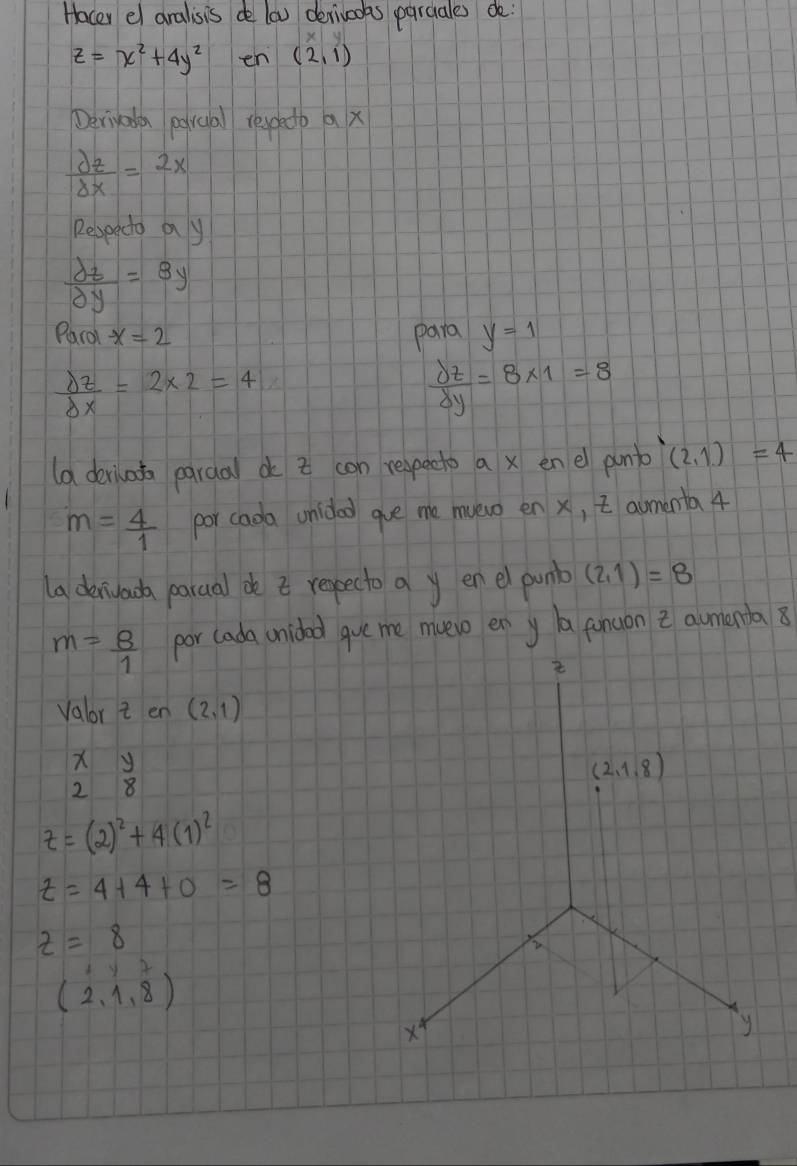 Hacer el analisis de las derivadas parciales de:
x y
z = x² + 4y² en (2,1)
Derivada parcial respecto a x
∂z/∂x = 2x
Respecto a y
∂z/∂y = 8y
Para x = 2 para y = 1
∂z/∂x = 2×2 = 4 ∂z/∂y = 8×1 = 8
la derivada parcial de z con respecto a x en el punto (2,1) = 4
m = 4/1 por cada unidad que me muevo en x, z aumenta 4
la derivada parcial de z respecto a y en el punto (2,1) = 8
m = 8/1 por cada unidad que me muevo en y la funcion z aumenta 8
z
Valor z en (2,1)
x y
2 8
(2,1,8)
z = (2)² + 4(1)²
z = 4+4+0 = 8
z = 8
2
x y z
(2,1,8)
x
y